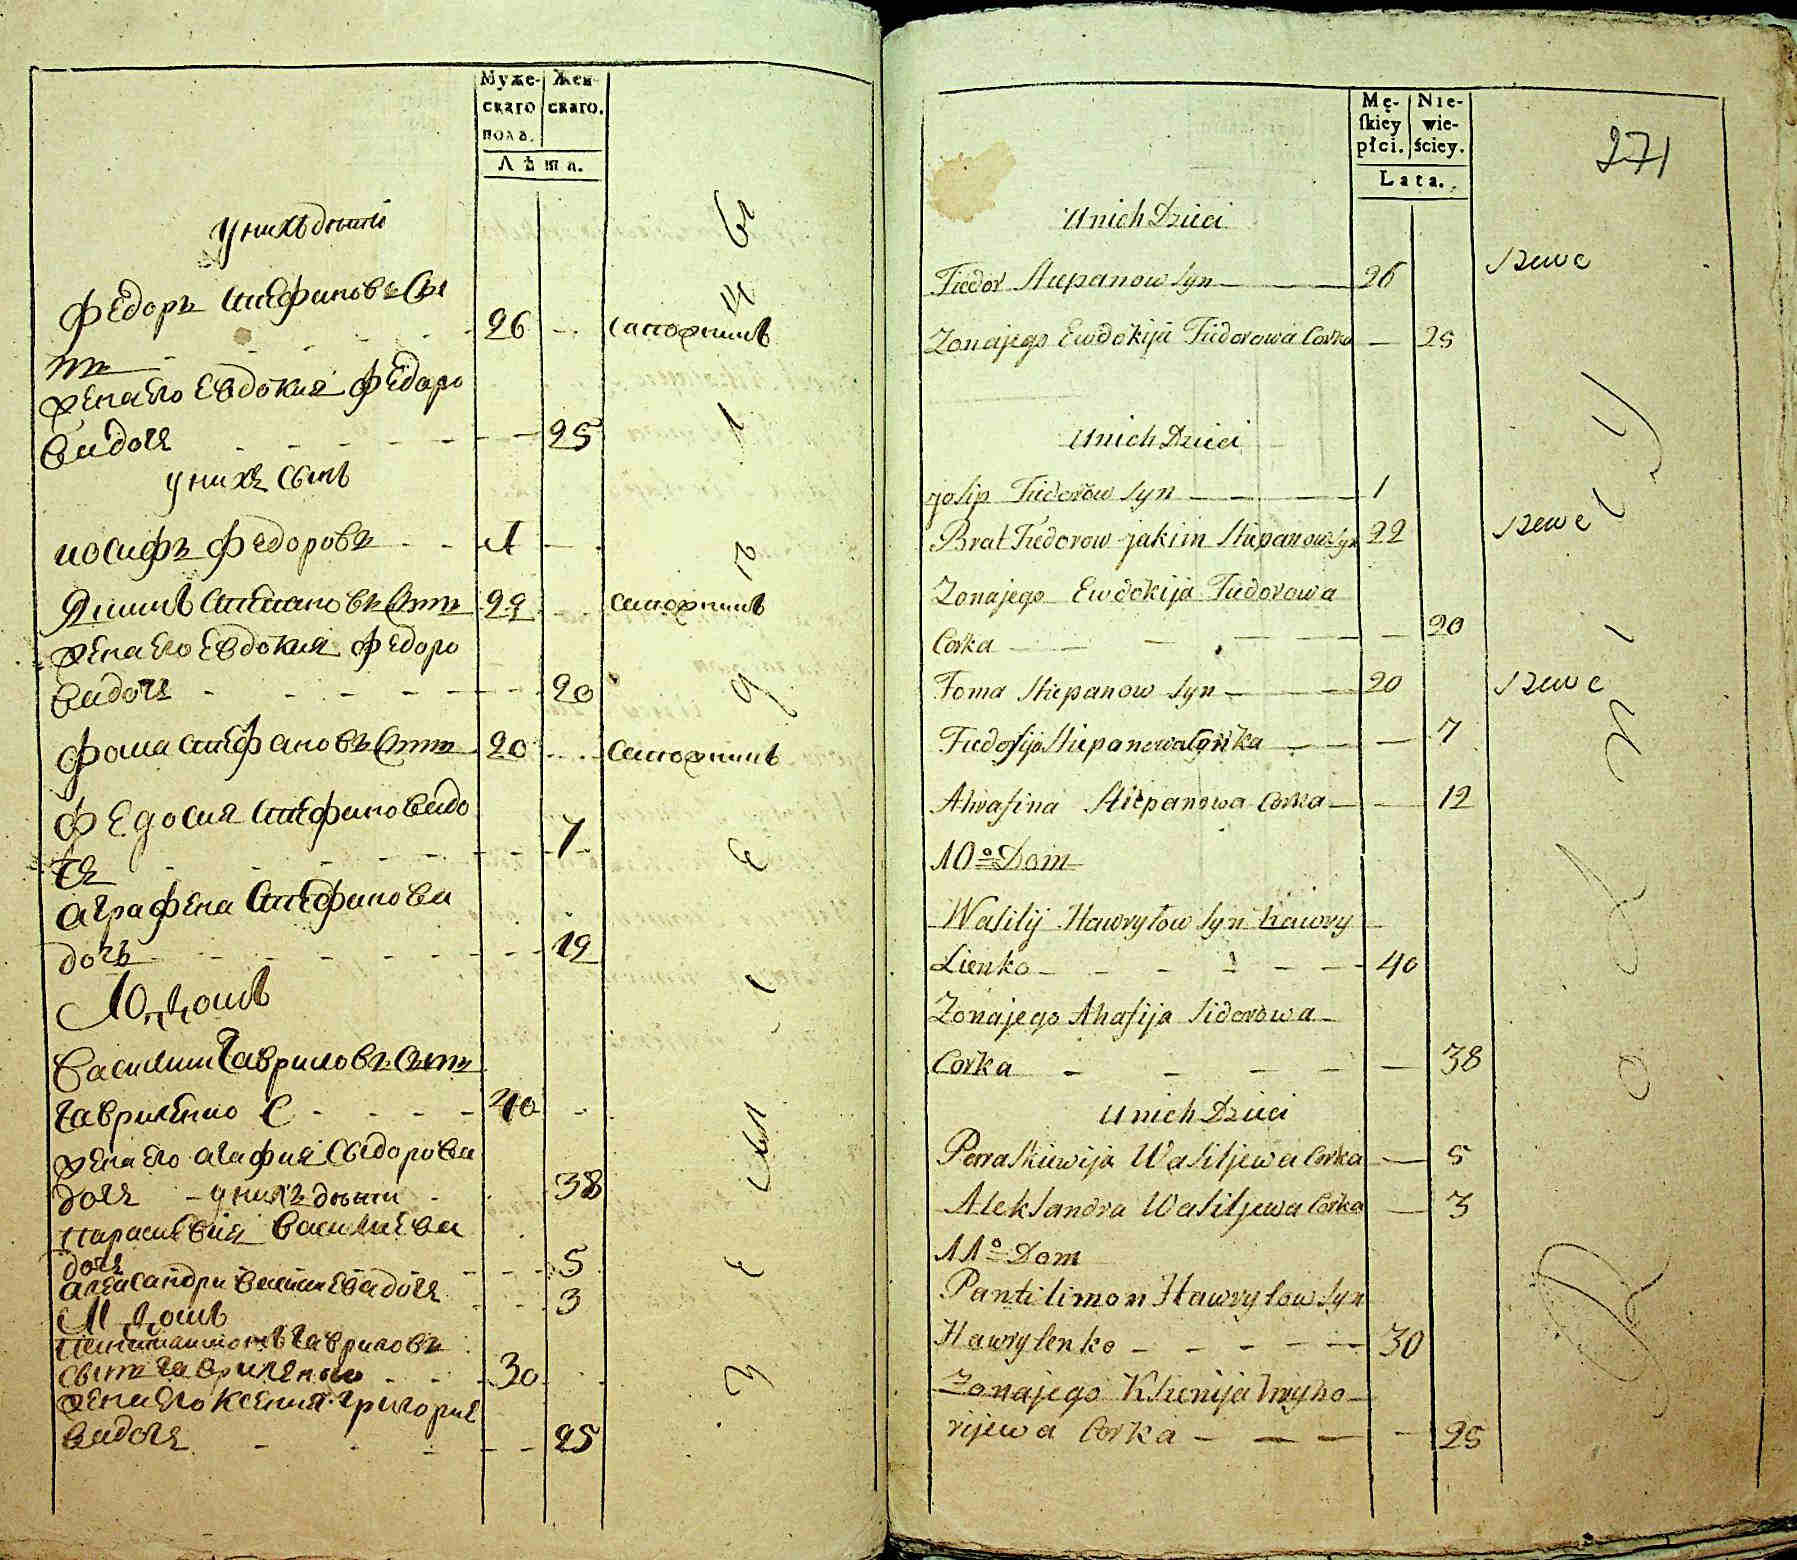 Муже-
скаго
пола.
Жен-
скаго.
Лѣта.
у нихъ дѣти
Федоръ Стефановъ Сы
нъ 26 сапожникъ
жена его Евдокия Федоро
ва дочь 25
у нихъ сынъ
иосифъ Федоровъ 1
Якимъ Степановъ Сынъ 22 сапожникъ
жена его Евдокия Федоро
ва дочь 20
Фома Стефановъ Сынъ 20 сапожникъ
Федосия Стефанова до
чь 7
аграфена Стефанова
дочь 12
10 Домъ
Василии Гавриловъ Сынъ
гавриленко 40
жена его агафия Сыдорова
дочь 38
у нихъ дѣти
параскевия Василиева
дочь 5
александра Василиева дочь 3
11 Домъ
пантилимонъ Гавриловъ
сынъ гавриленко 30
жена его Ксения григорие
ва дочь 25
Mę-
ſkiey
płci.
Nie-
wie-
ściey.
Lata.
271
U nich Dzieci
Fiedor Stiepanow Syn 26 szewc
Zona jego Ewdokija Fiedorowa Corka 25
U nich Dzieci
Josip Fiedorow Syn 1
Brat Fiedorow Jakim Stiepanow Syn 22 szewc
Zona jego Ewdokija Fiedorowa
Corka 20
Foma Stiepanow Syn 20 szewc
Fiedosija Stiepanowa Corka 7
Ahrafina Stiepanowa Corka 12
10o Dom
Wasilij Hawryłow Syn Hawry
lienko 40
Zona jego Ahafija Sidorowa
Corka 38
U nich Dzieci
Parraskiewija Wasiljewa Corka 5
Aleksandra Wasiljewa Corka 3
11o Dom
Pantilimon Hawryłow Syn
Hawrylenko 30
Zona jego Ksienija Hryho
rijewa Corka 25